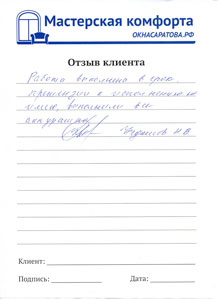 Мастерская комфорта
ОКНАСАРАТОВА.РФ
Отзыв клиента
Работа выполнена в срок,
претензии к исполнению не
имею, выполнили все
аккуратно
Клиент:
Подпись: Дата: